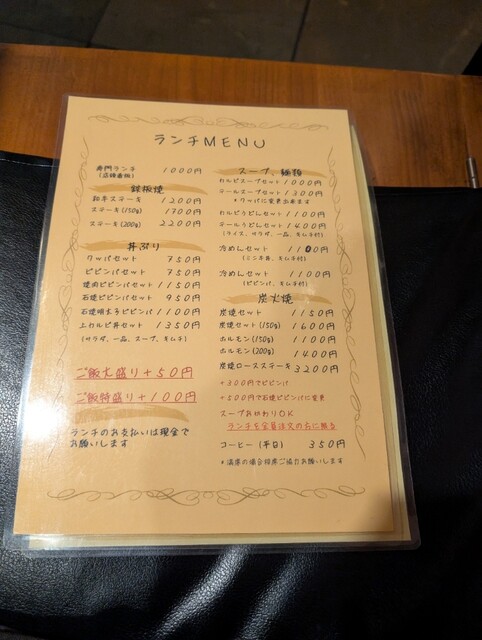 ランチMENU
専門ランチ 1000円
(店頭看板)
鉄板焼
和牛ステーキ 1200円
ステーキ(150g) 1700円
ステーキ(200g) 2200円
丼ぶり
クッパセット 750円
ビビンバセット 750円
焼肉ビビンバセット 1150円
石焼ビビンバセット 950円
石焼明太子ビビンバ 1100円
上カルビ丼セット 1350円
(サラダ、一品、スープ、キムチ)
ご飯大盛り+50円
ご飯特盛り+100円
ランチのお支払いは現金で
お願いします
スープ、麺類
カルビスープセット 1000円
テールスープセット 1300円
*クッパに変更出来ます
カルビうどんセット 1100円
テールうどんセット 1400円
(ライス、サラダ、一品、キムチ付)
冷めんセット 1100円
(ミニ牛丼、キムチ付)
冷めんセット 1100円
(ビビンバ、キムチ付)
炭火焼
炭焼セット 1150円
炭焼セット(150g) 1600円
ホルモン(150g) 1100円
ホルモン(200g) 1400円
炭焼ロースステーキ 3200円
+300円でビビンバ
+500円で石焼ビビンバに変更
スープおかわりOK
ランチを全員注文の方に限る
コーヒー(平日) 350円
*満席の場合相席ご協力お願いします